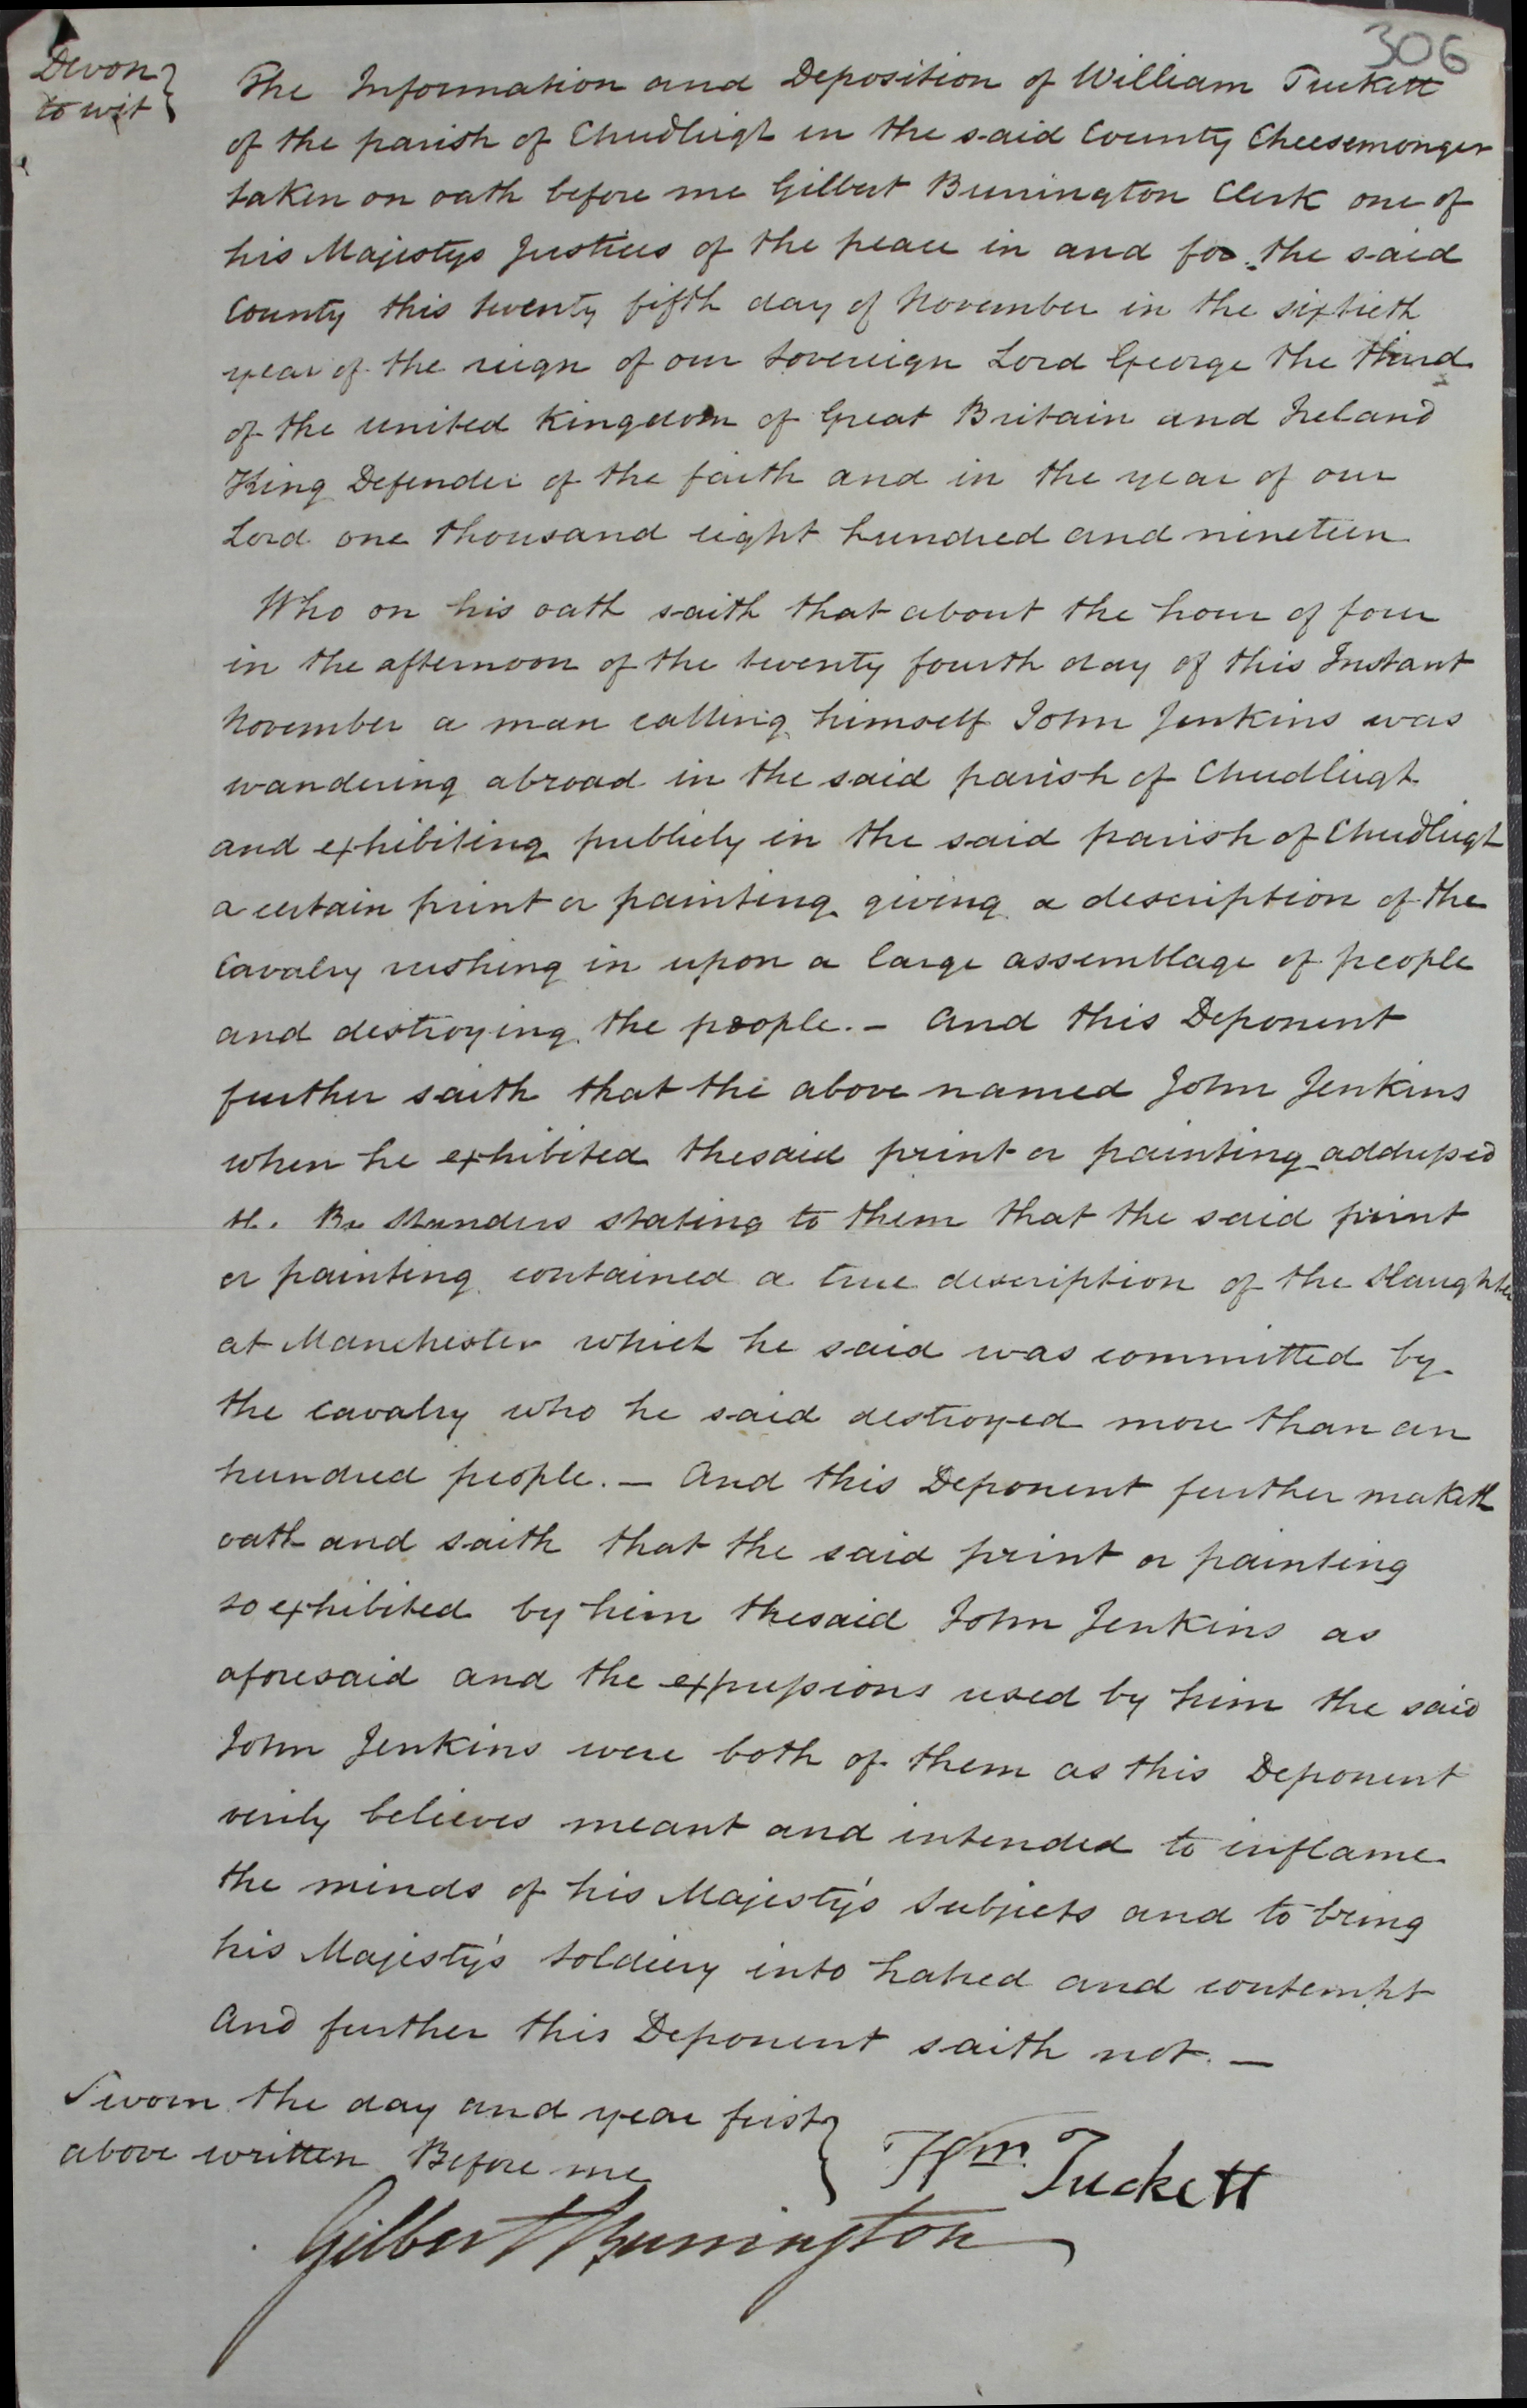 306
Devon
to wit
The Information and Deposition of William Tuckett
of the parish of Chudleigh in the said County Cheesemonger
taken on oath before me Gilbert Burrington Clerk one of
his Majestys Justices of the peace in and for the said
County this twenty fifth day of November in the sixtieth
year of the reign of our Sovereign Lord George the third
of the united Kingdom of Great Britain and Ireland
King Defender of the faith and in the year of our
Lord one thousand eight hundred and nineteen
Who on his oath saith that about the hour of four
in the afternoon of the twenty fourth day of this Instant
November a man calling himself John Jenkins was
wandering abroad in the said parish of Chudleigh
and exhibiting publicly in the said parish of Chudleigh
a certain print or painting giving a description of the
Cavalry rushing in upon a large assemblage of people
and destroying the people. – And this Deponent
further saith that the above named John Jenkins
when he exhibited the said print or painting addressed
the By Standers stating to them that the said print
or painting contained a true description of the Slaughter
at Manchester which he said was committed by
the Cavalry who he said destroyed more than an
hundred people. – And this Deponent further maketh
oath and saith that the said print or painting
so exhibited by him the said John Jenkins as
aforesaid and the expressions used by him the said
John Jenkins were both of them as this Deponent
verily believes meant and intended to inflame
the minds of his Majesty's Subjects and to bring
his Majesty's Soldiery into hatred and contempt
And further this Deponent saith not. –
Sworn the day and year first
above written Before me
Wm. Tuckett
Gilbert Burrington